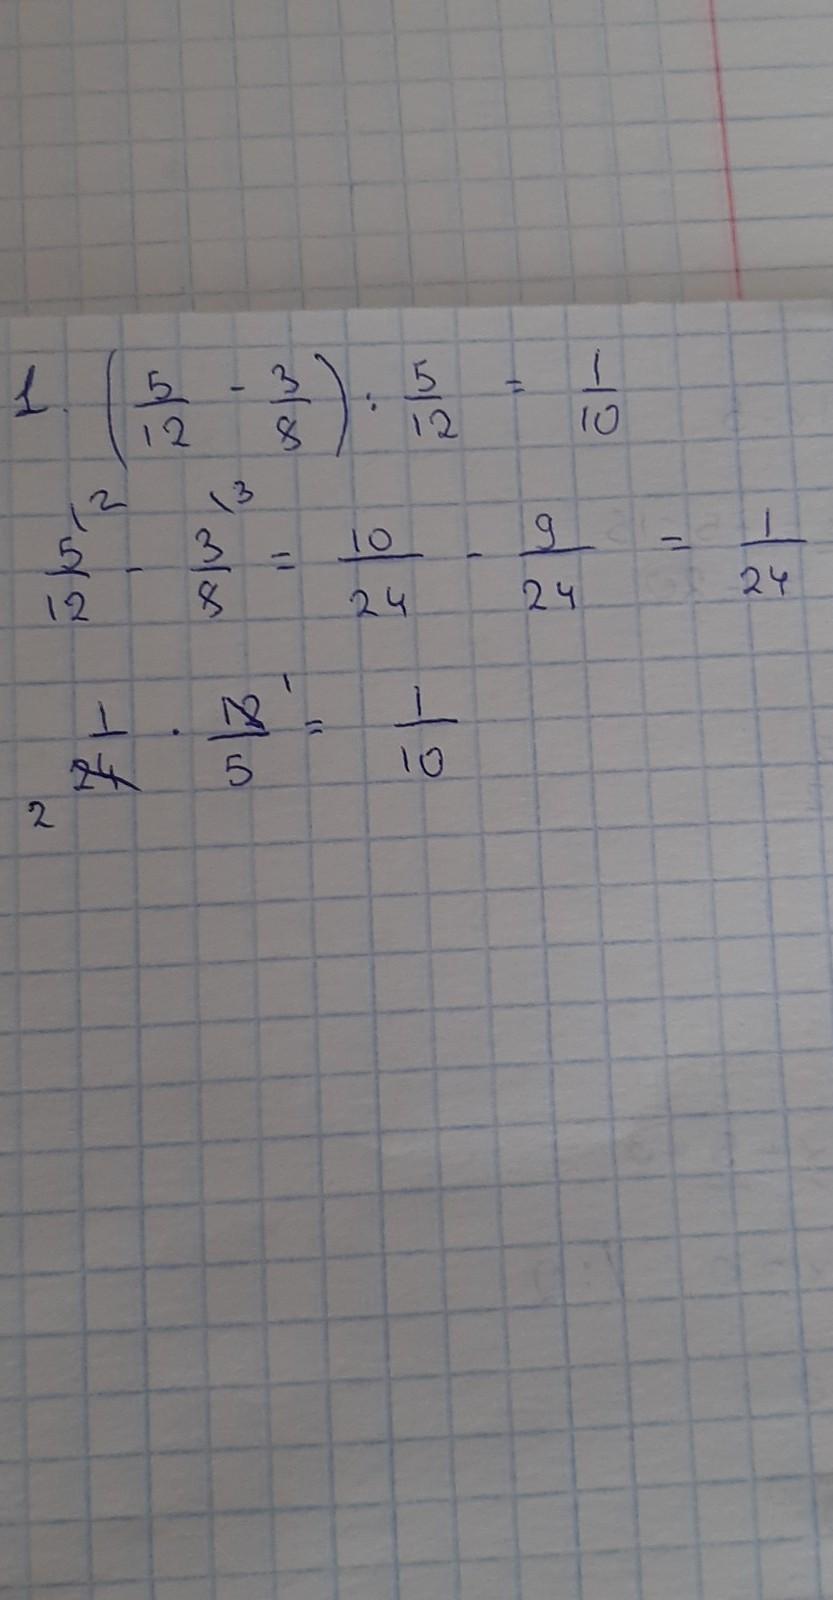 1. (5/12 - 3/8) : 5/12 = 1/10
5/12 \2 - 3/8 \3 = 10/24 - 9/24 = 1/24
1/24 2 · 12/5 1 = 1/10